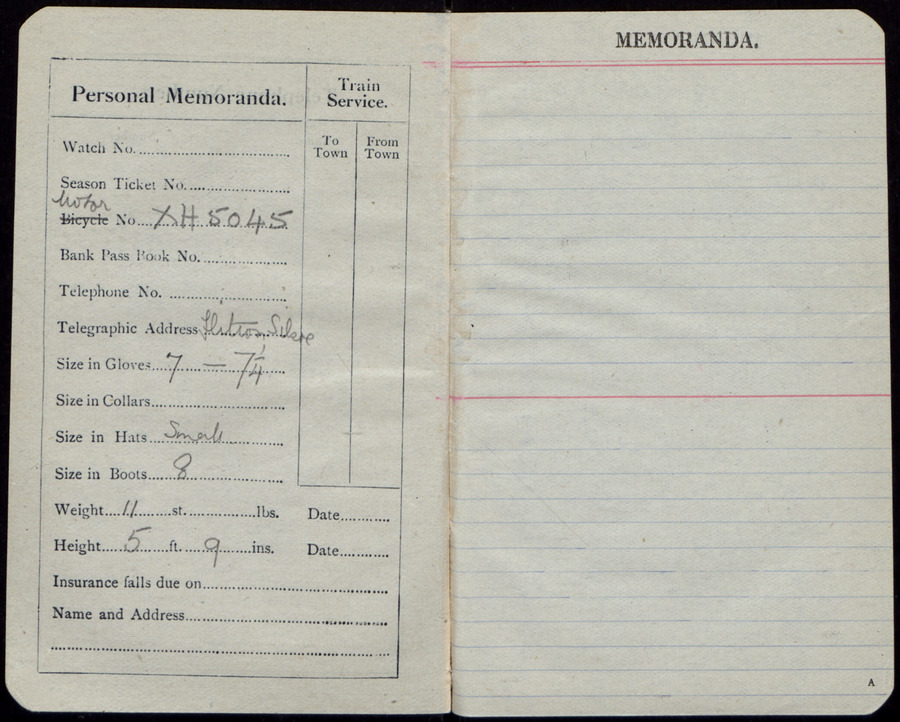 MEMORANDA.
Personal Memoranda.
Train Service.
To Town
From Town
Watch No.
Season Ticket No.
Motor
Bicycle No. XH 5045
Bank Pass Book No.
Telephone No.
Telegraphic Address
Size in Gloves 7 — 7¼
Size in Collars
Size in Hats Small
Size in Boots 8
Weight 11 st. lbs.
Date
Height 5 ft. 9 ins.
Date
Insurance falls due on
Name and Address
A